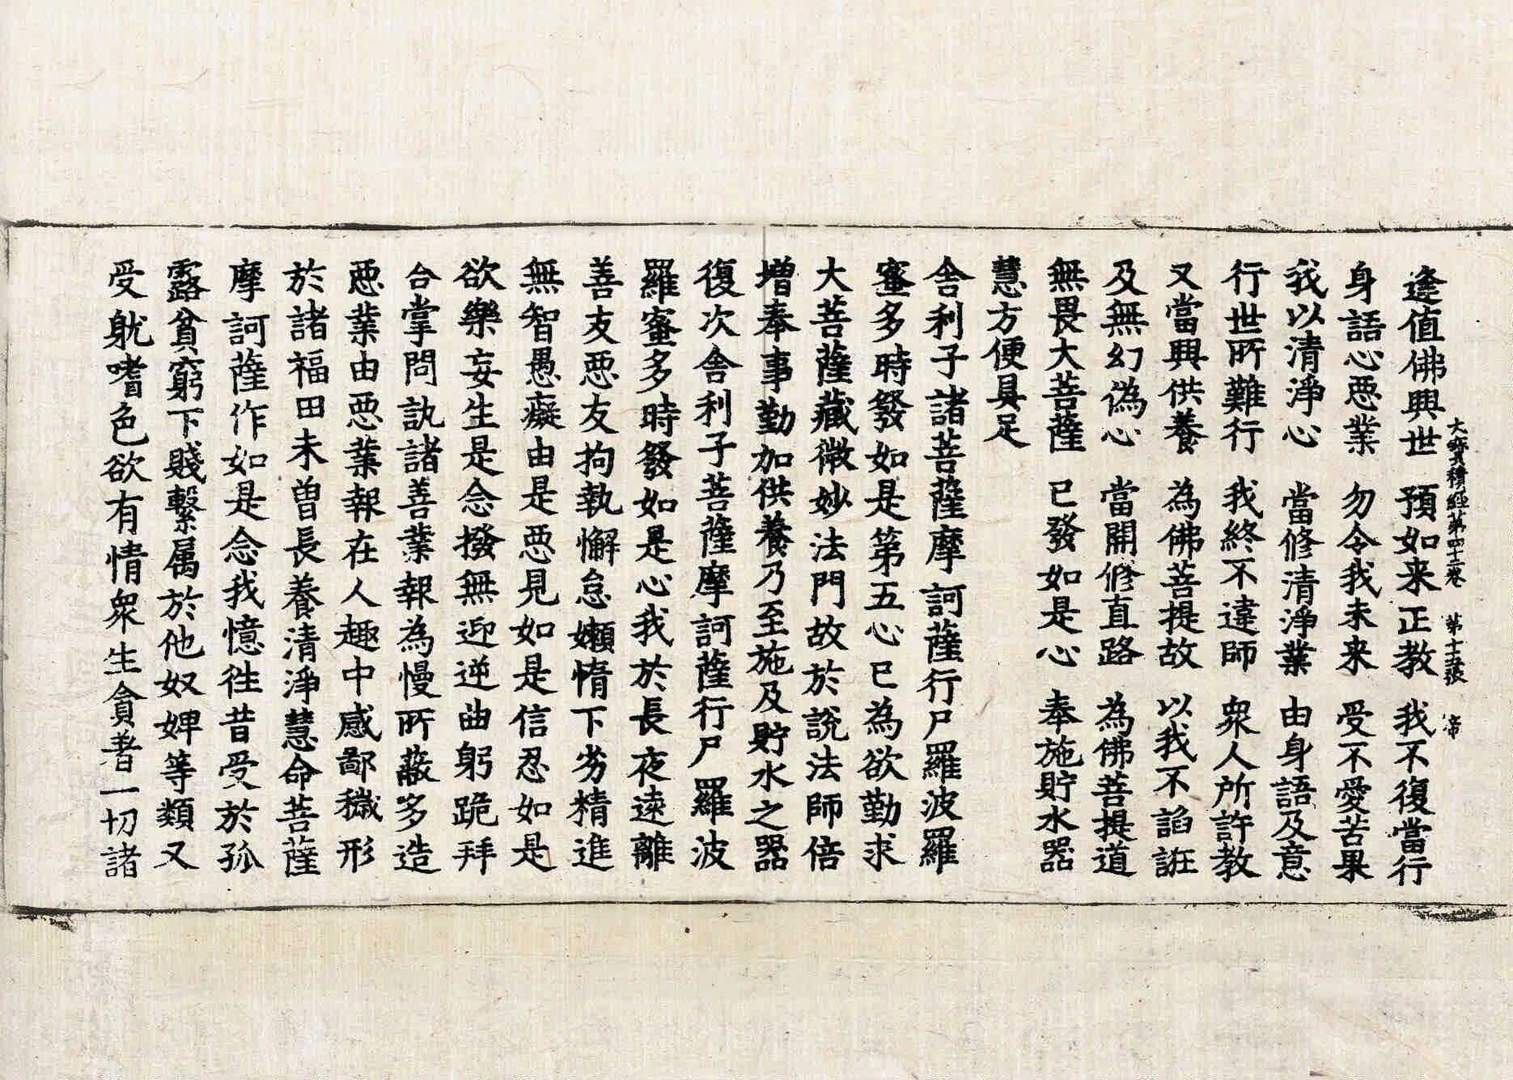 大寶積經第四十二卷　第十三張　帝
逢值佛興世　預如来正教　我不復當行
身語心惡業　勿令我未来　受不愛苦果
我以清淨心　當修清淨業　由身語及意
行世所難行　我終不違師　衆人所許教
又當興供養　為佛菩提故　以我不諂誑
及無幻偽心　當開修直路　為佛菩提道
無畏大菩薩　已發如是心　奉施貯水器
慧方便具足
舎利子諸菩薩摩訶薩行尸羅波羅
蜜多時發如是第五心已為欲勤求
大菩薩藏微妙法門故於說法師倍
增奉事勤加供養乃至施及貯水之器
復次舎利子菩薩摩訶薩行尸羅波
羅蜜多時發如是心我於長夜遠離
善友惡友拘執懈怠嬾惰下劣精進
無智愚癡由是惡見如是信忍如是
欲樂妄生是念撥無迎逆曲躬跪拜
合掌問訊諸善業報為慢所蔽多造
惡業由惡業報在人趣中感鄙穢形
於諸福田未曽長養清淨慧命菩薩
摩訶薩作如是念我憶徃昔受於孤
露貧窮下賤繫属於他奴婢等類又
受躭嗜色欲有情衆生貪著一切諸